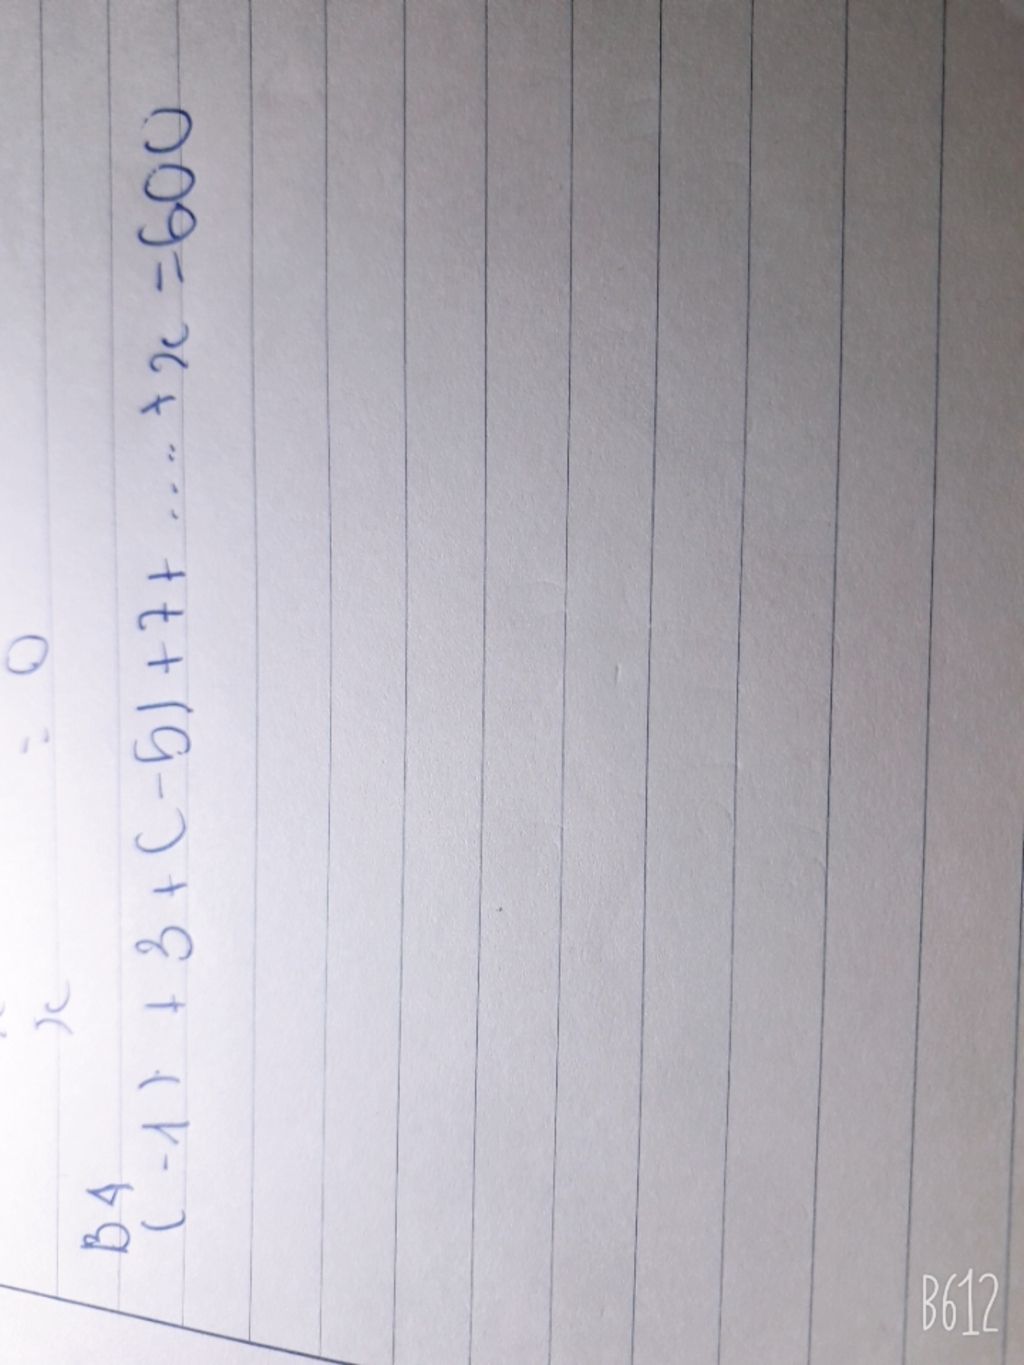 x = 0
B4
(-1) + 3 + (-5) + 7 + .... + x = 600
B612